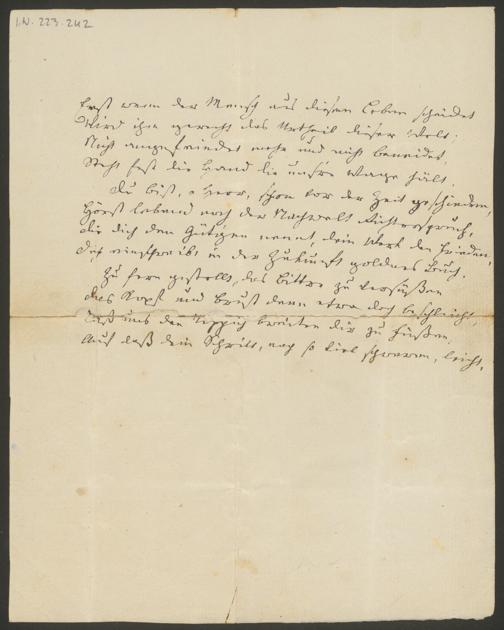 I.N. 223.242
Erst wenn der Mensch aus diesem Leben scheidet
Wird ihm gerecht das Urtheil dieser Welt;
Nicht angefeindet mehr und nicht beneidet,
Steht fest die Hand die unsre Wage hält.
Du bist, o Herr, schon vor der Zeit geschieden,
Hörst lebend noch der Nachwelt Richterspruch,
Die dich den Gütigen nennt, dein Werk den Frieden,
Dich einschreibt in der Zukunft goldnes Buch.
Zu fern gestellt, das Bittre zu versüßen
Das Kopf und Brust denn etwa doch beschleicht,
Laß uns den Teppich breiten dir zu Füßen,
Auf daß dein Schritt, nach so viel schweren, leicht.